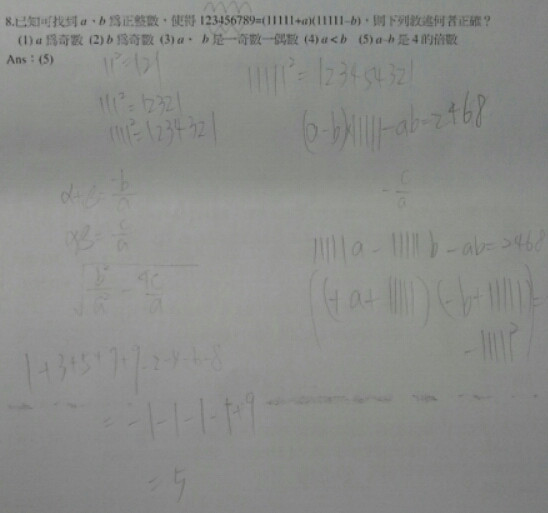 8.已知可找到 a、b 為正整數，使得 123456789=(11111+a)(11111−b)，則下列敘述何者正確？
(1) a 為奇數 (2) b 為奇數 (3) a、b 是一奇數一偶數 (4) a<b (5) a-b 是 4 的倍數
Ans：(5)
11²=121
11111²=123454321
111²=12321
1111²=1234321
(a-b)11111-ab=2468
α+β=-b/a
-c/a
αβ=c/a
11111a-11111b-ab=2468
√b²/a²-4c/a
((+a+11111)(-b+11111)=
-11111²)
1+3+5+7+9-2-4-6-8
=-1-1-1-1+9
=5